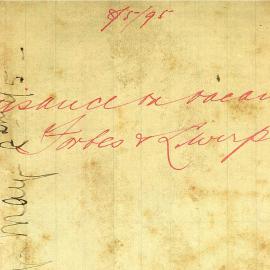 8/5/95
isance on vacan
Forbes & Liverp
May